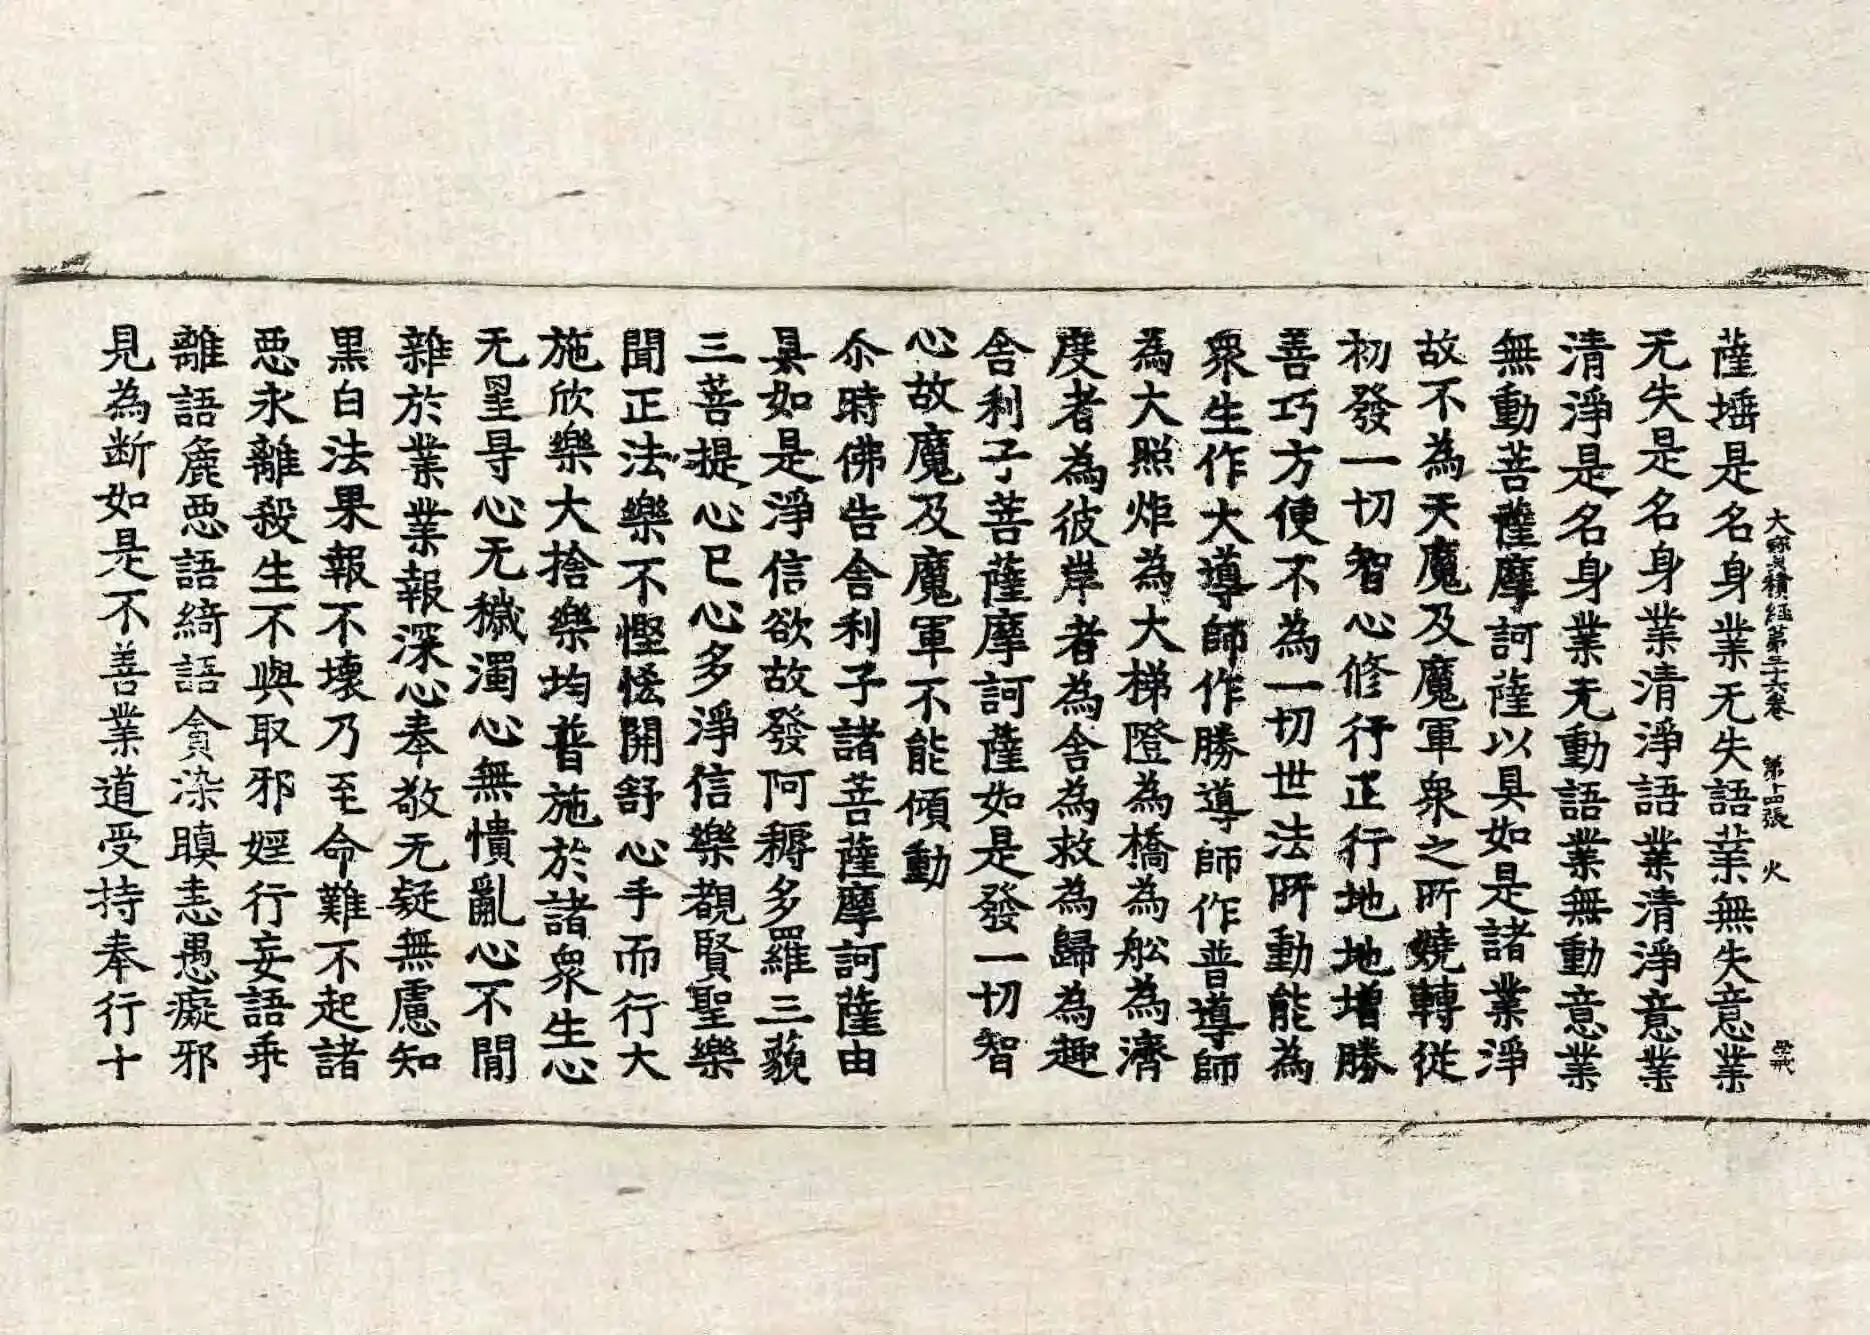 大寶積經第三十六卷 第十四張 火
薩埵是名身業无失語業無失意業
无失是名身業清淨語業清淨意業
清淨是名身業无動語業無動意業
無動菩薩摩訶薩以具如是諸業淨
故不為天魔及魔軍衆之所嬈轉從
初發一切智心修行正行地地增勝
善巧方便不為一切世法所動能為
衆生作大導師作勝導師作普導師
為大照炬為大梯隥為橋為舩為濟
度者為彼岸者為舍為救為歸為趣
舍利子菩薩摩訶薩如是發一切智
心故魔及魔軍不能傾動
尒時佛告舍利子諸菩薩摩訶薩由
具如是淨信欲故發阿耨多羅三藐
三菩提心已心多淨信樂覩賢聖樂
聞正法樂不慳悋開舒心手而行大
施欣樂大捨樂均普施於諸衆生心
无罣㝵心无穢濁心無憒亂心不閒
雜於業業報深心奉敬无疑無慮知
黒白法果報不壞乃至命難不起諸
惡永離殺生不與取邪婬行妄語乖
離語麁惡語綺語貪染瞋恚愚癡邪
見為断如是不善業道受持奉行十